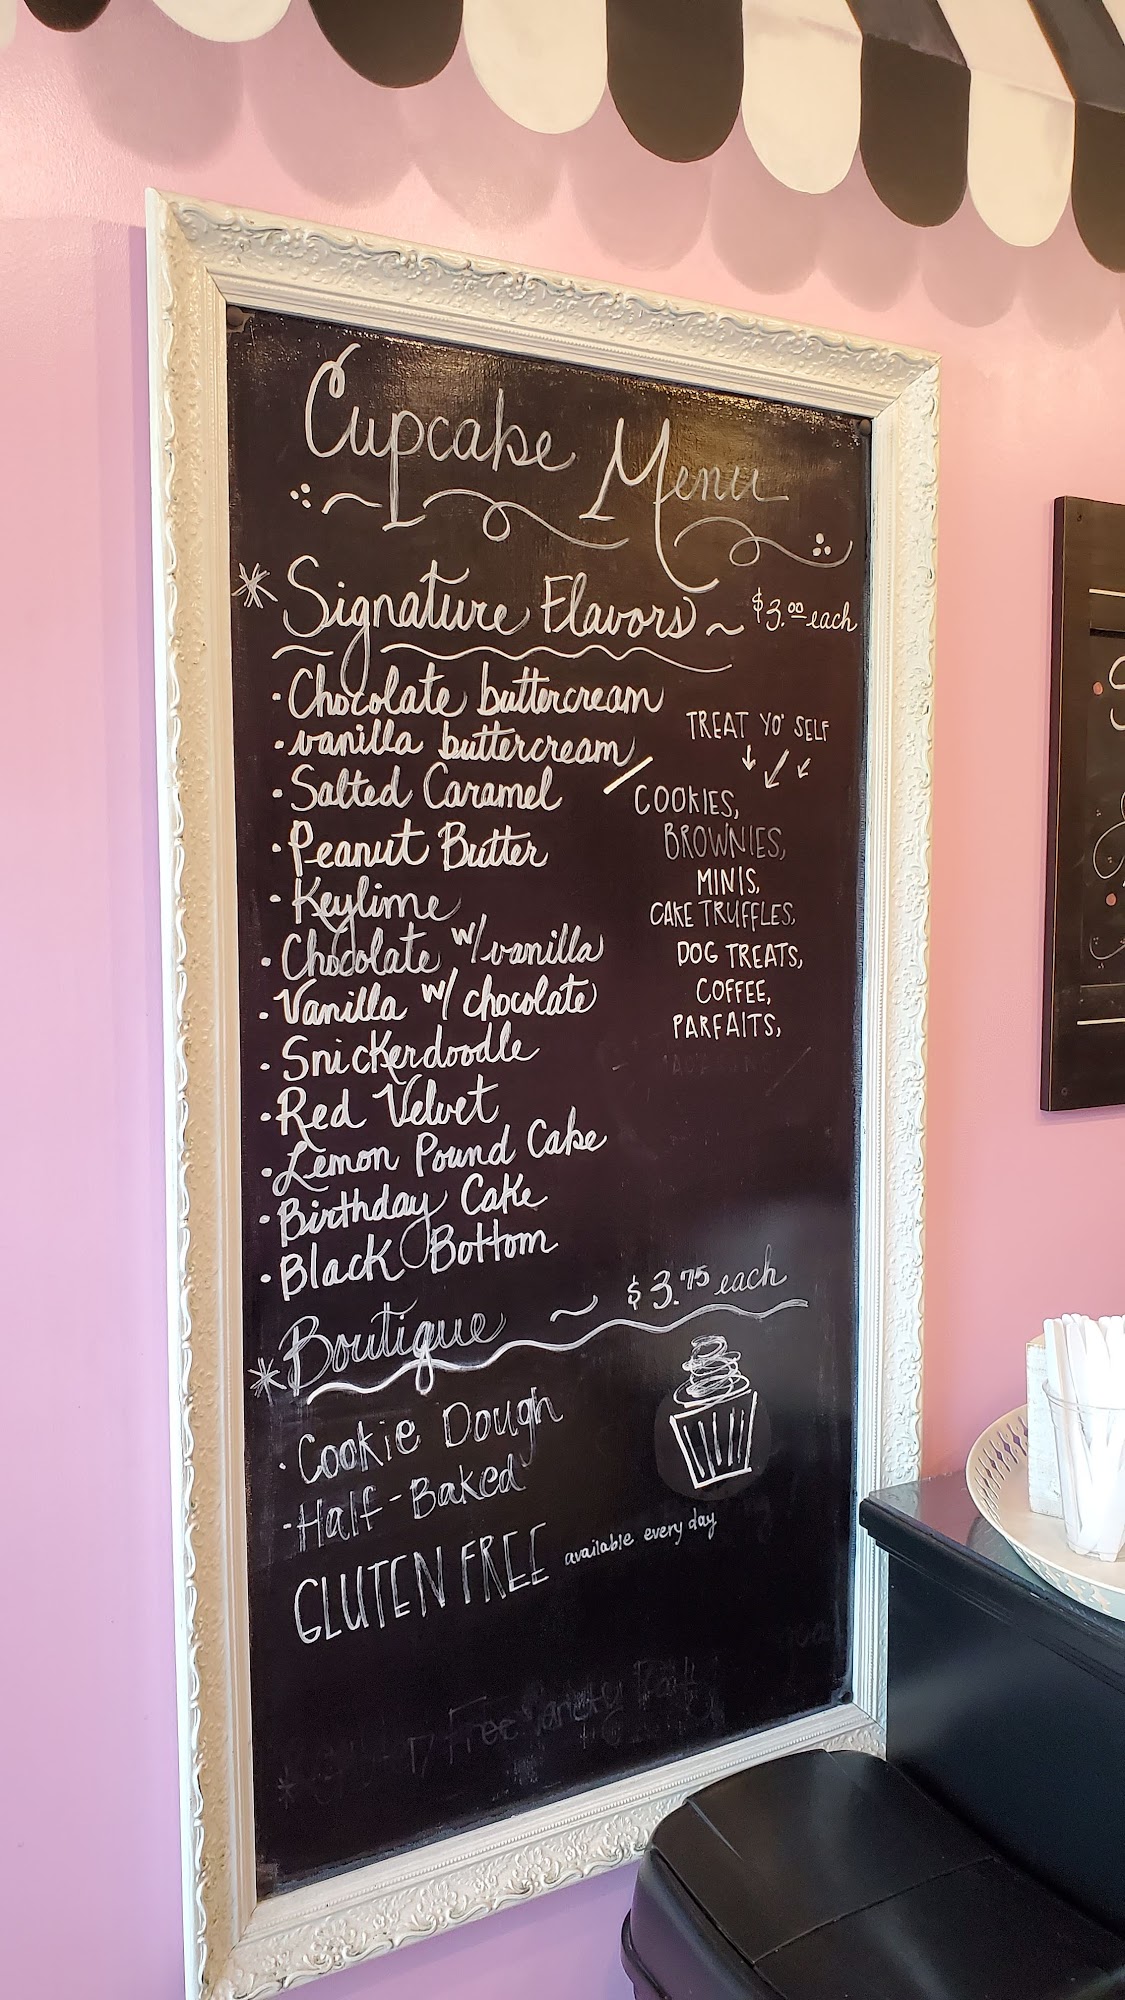 Cupcake Menu
* Signature Flavors ~ $3.00 each
• Chocolate buttercream
• vanilla buttercream
• Salted Caramel
• Peanut Butter
• Keylime
• Chocolate w/ vanilla
• Vanilla w/ chocolate
• Snickerdoodle
• Red Velvet
• Lemon Pound Cake
• Birthday Cake
• Black Bottom
TREAT YO' SELF
COOKIES,
BROWNIES,
MINIS,
CAKE TRUFFLES,
DOG TREATS,
COFFEE,
PARFAITS,
* Boutique ~ $3.75 each
• Cookie Dough
• Half-Baked
GLUTEN FREE available every day
Free Variety